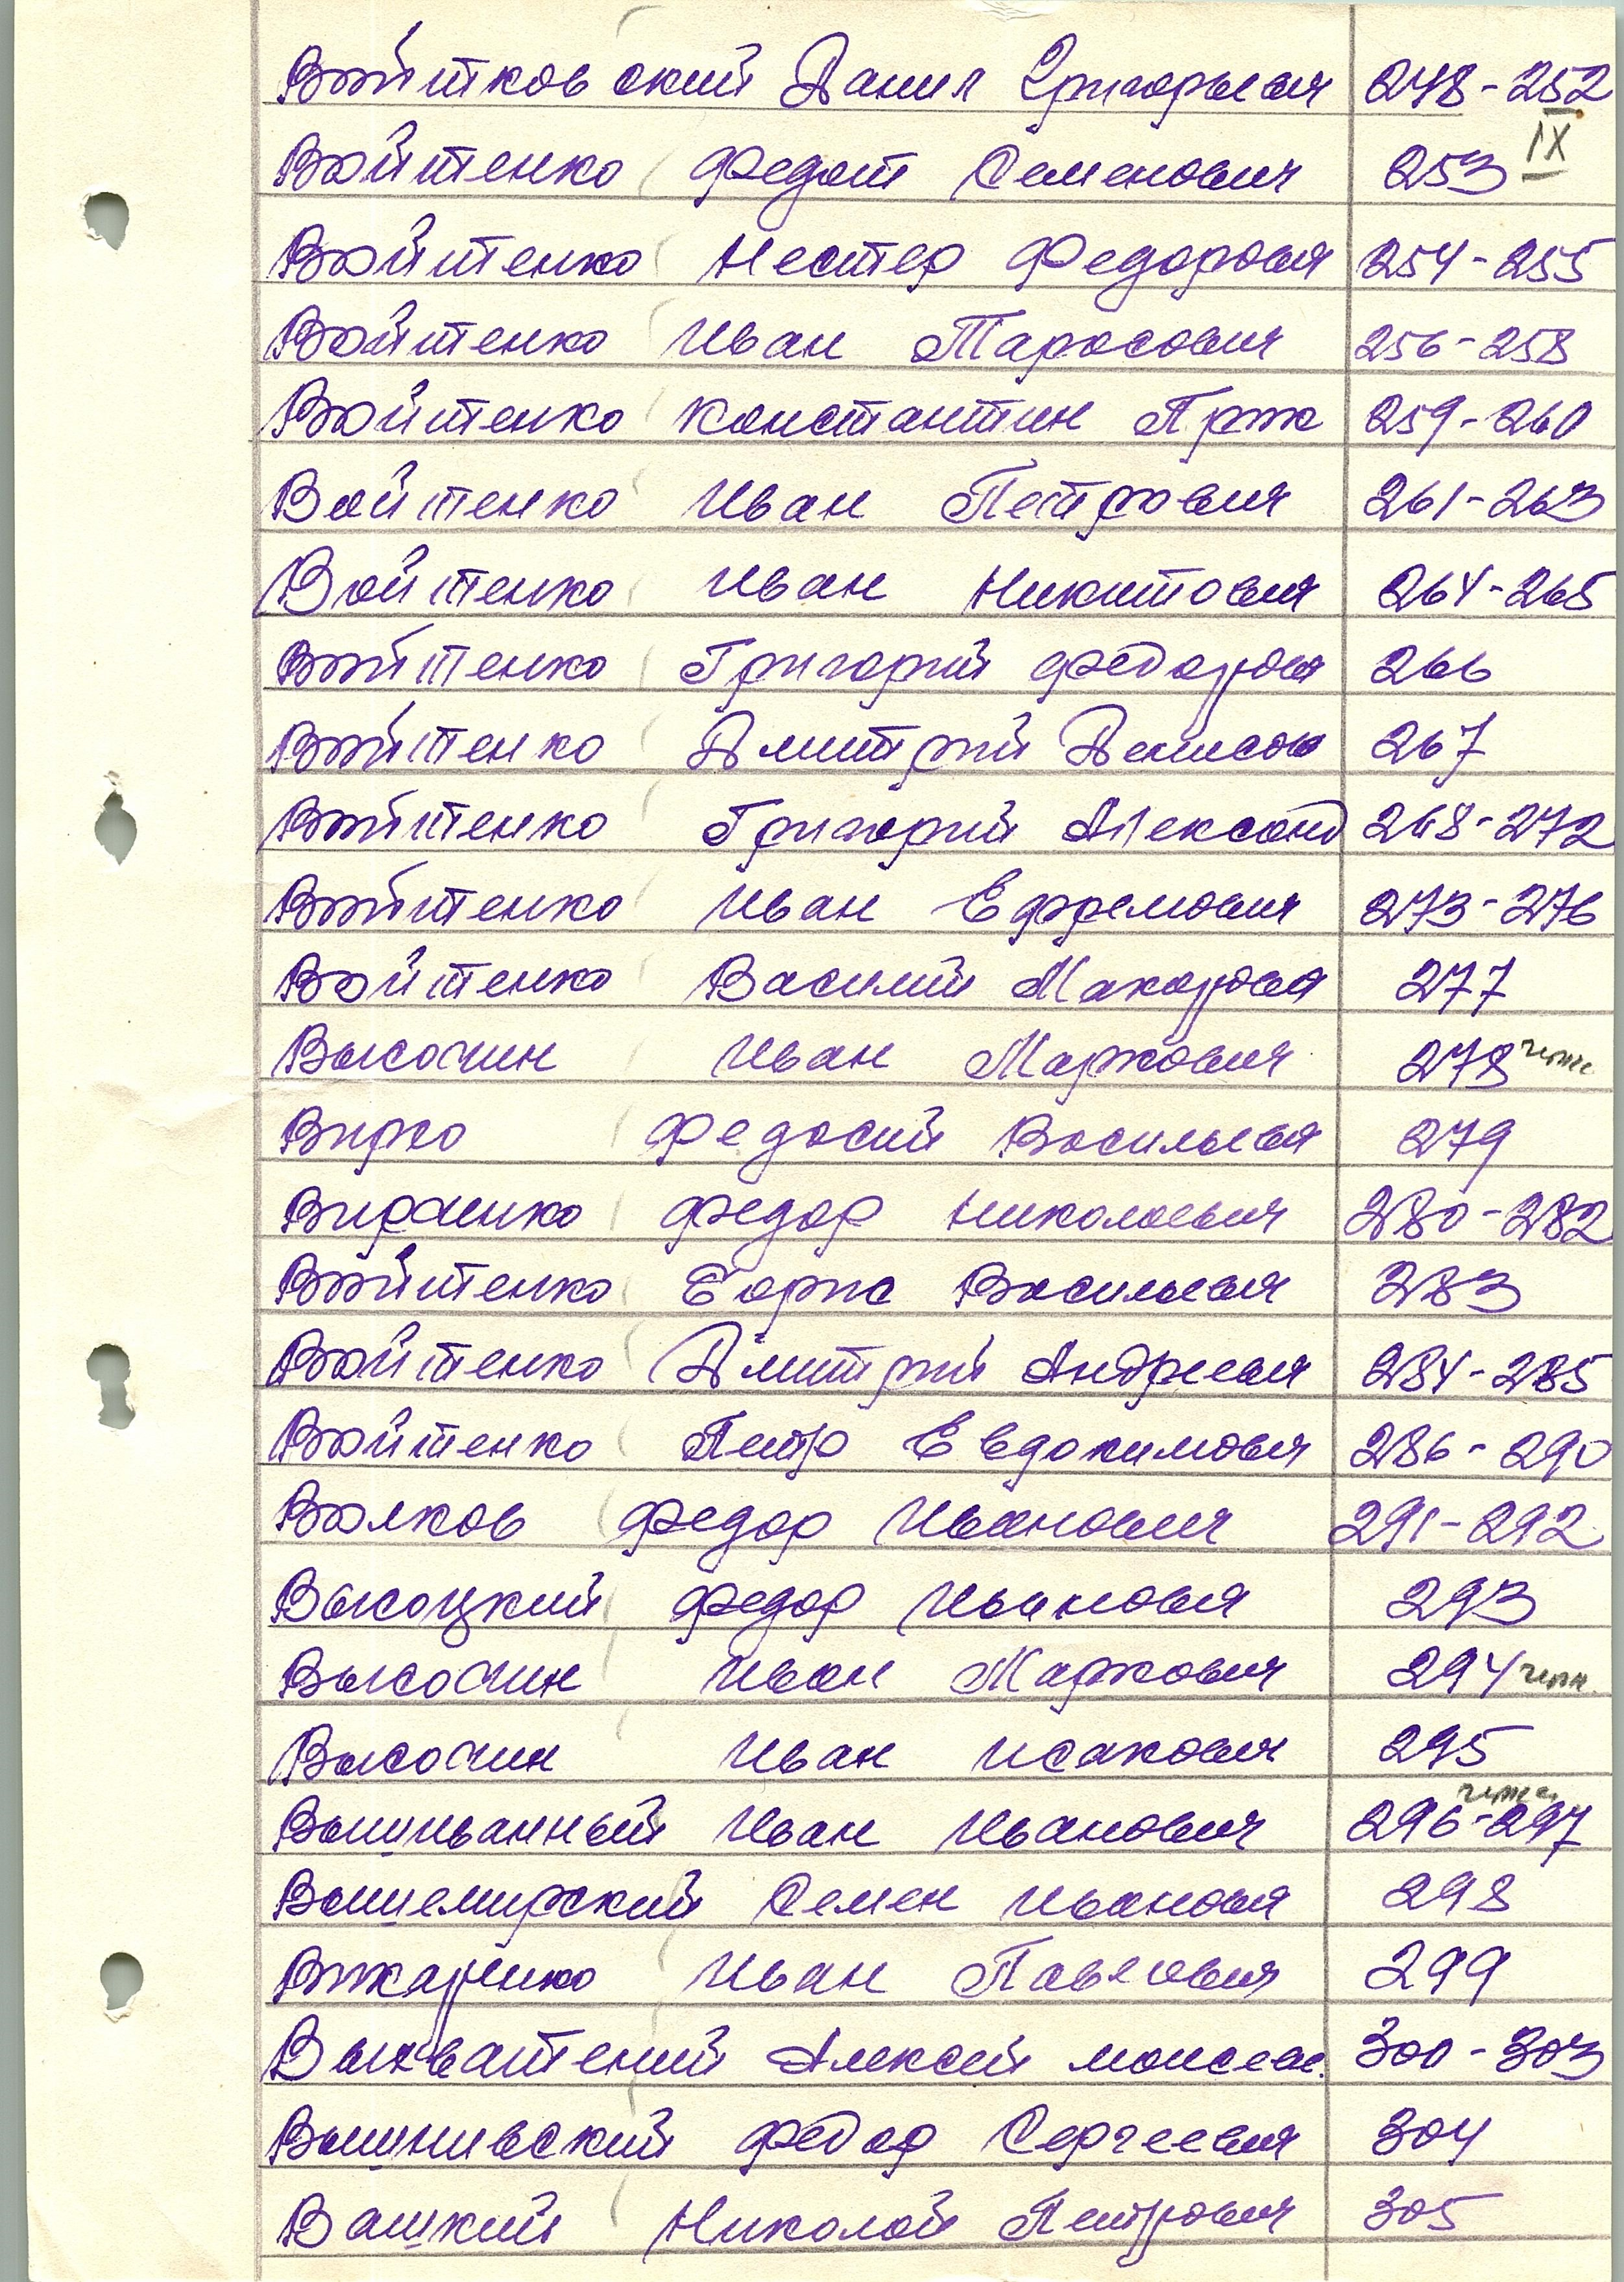 Войтковский Данил Григорьевич 248-252
IX
Войтенко Федот Семенович 253
Войтенко Нестер Федорович 254-255
Войтенко Иван Тарасович 256-258
Войтенко Константин 259-260
Войтенко Иван Петрович 261-263
Войтенко Иван Никитович 264-265
Войтенко Григорий Федорович 266
Войтенко Дмитрий Денисов 267
Войтенко Григорий Александ 268-272
Войтенко Иван Ефремович 273-276
Войтенко Василий Макарович 277
Высочин Иван Маркович 278
Вирко Федосий Васильевич 279
Вирченко Федор Николаевич 280-282
Войтенко Борис Васильевич 283
Войтенко Дмитрий Андреевич 284-285
Войтенко Петр Евдокимович 286-290
Волков Федор Иванович 291-292
Высоцкий Федор Иванович 293
Высочин Иван Маркович 294
Высочин Иван Исакович 295
Вышиванный Иван Иванович 296-297
Вышемирский Семен Иванович 298
Вижаренко Иван Павлович 299
Выхватений Алексей Моисеев. 300-303
Вышнивский Федор Сергеевич 304
Вашкий Николай Петрович 305